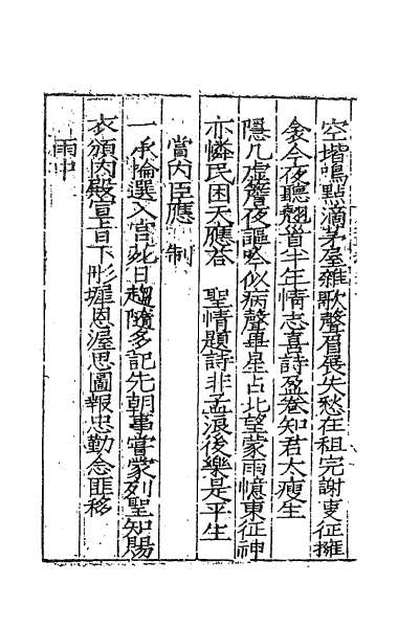 空堦鳴點滴茅屋雜歌聲眉展失愁在租完謝吏征擁
衾今夜聽翹首半年情志喜詩盈卷知君太瘦生
隱几虛簷夜謳吟似病聲畢星占北望蒙雨憶東征神
亦憐民困天應答　聖情題詩非孟浪後樂是平生
當內臣應　制
一承掄選入官此日趨隨多記先朝事嘗蒙列聖知賜
衣頒內殿宣旨下彤墀恩渥思圖報忠勤念匪移
雨中